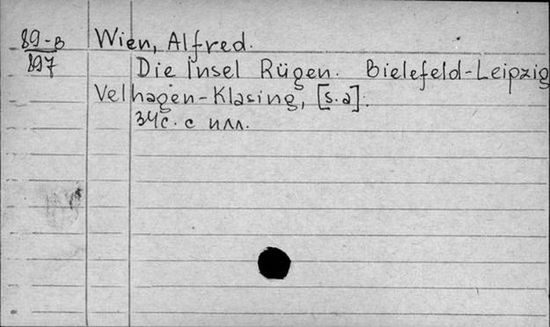 89-в Wien, Alfred.
897 Die Insel Rügen. Bielefeld-Leipzig
Velhagen-Klasing, [s.a].
34с. с илл.